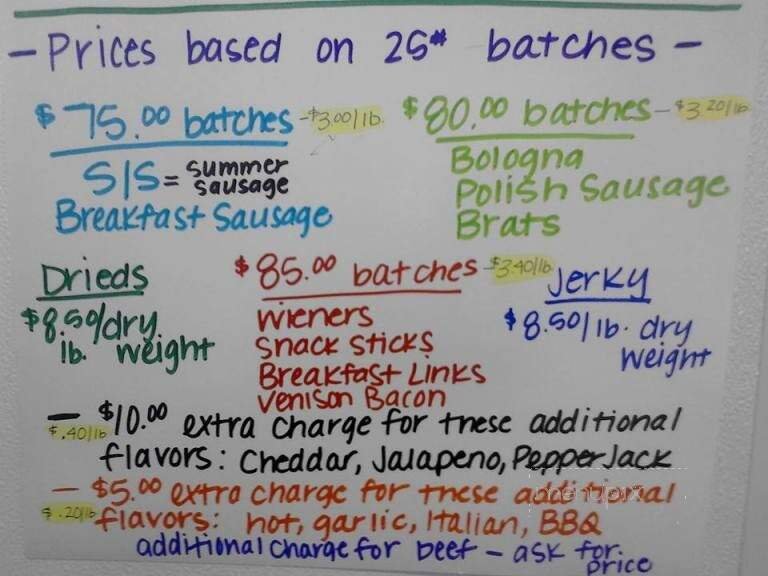 - Prices based on 25# batches -
$75.00 batches - $3.00/lb.
S/S = summer sausage
Breakfast Sausage
$80.00 batches - $3.20/lb.
Bologna
Polish Sausage
Brats
Drieds
$8.50/dry
lb. weight
$85.00 batches - $3.40/lb
Wieners
Snack Sticks
Breakfast Links
Venison Bacon
Jerky
$8.50/lb. dry
weight
- $10.00 extra charge for these additional
$.40/lb
flavors: Cheddar, Jalapeno, Pepper Jack
- $5.00 extra charge for these additional
$.20/lb
flavors: hot, garlic, Italian, BBQ
additional charge for beef - ask for
price
menupix